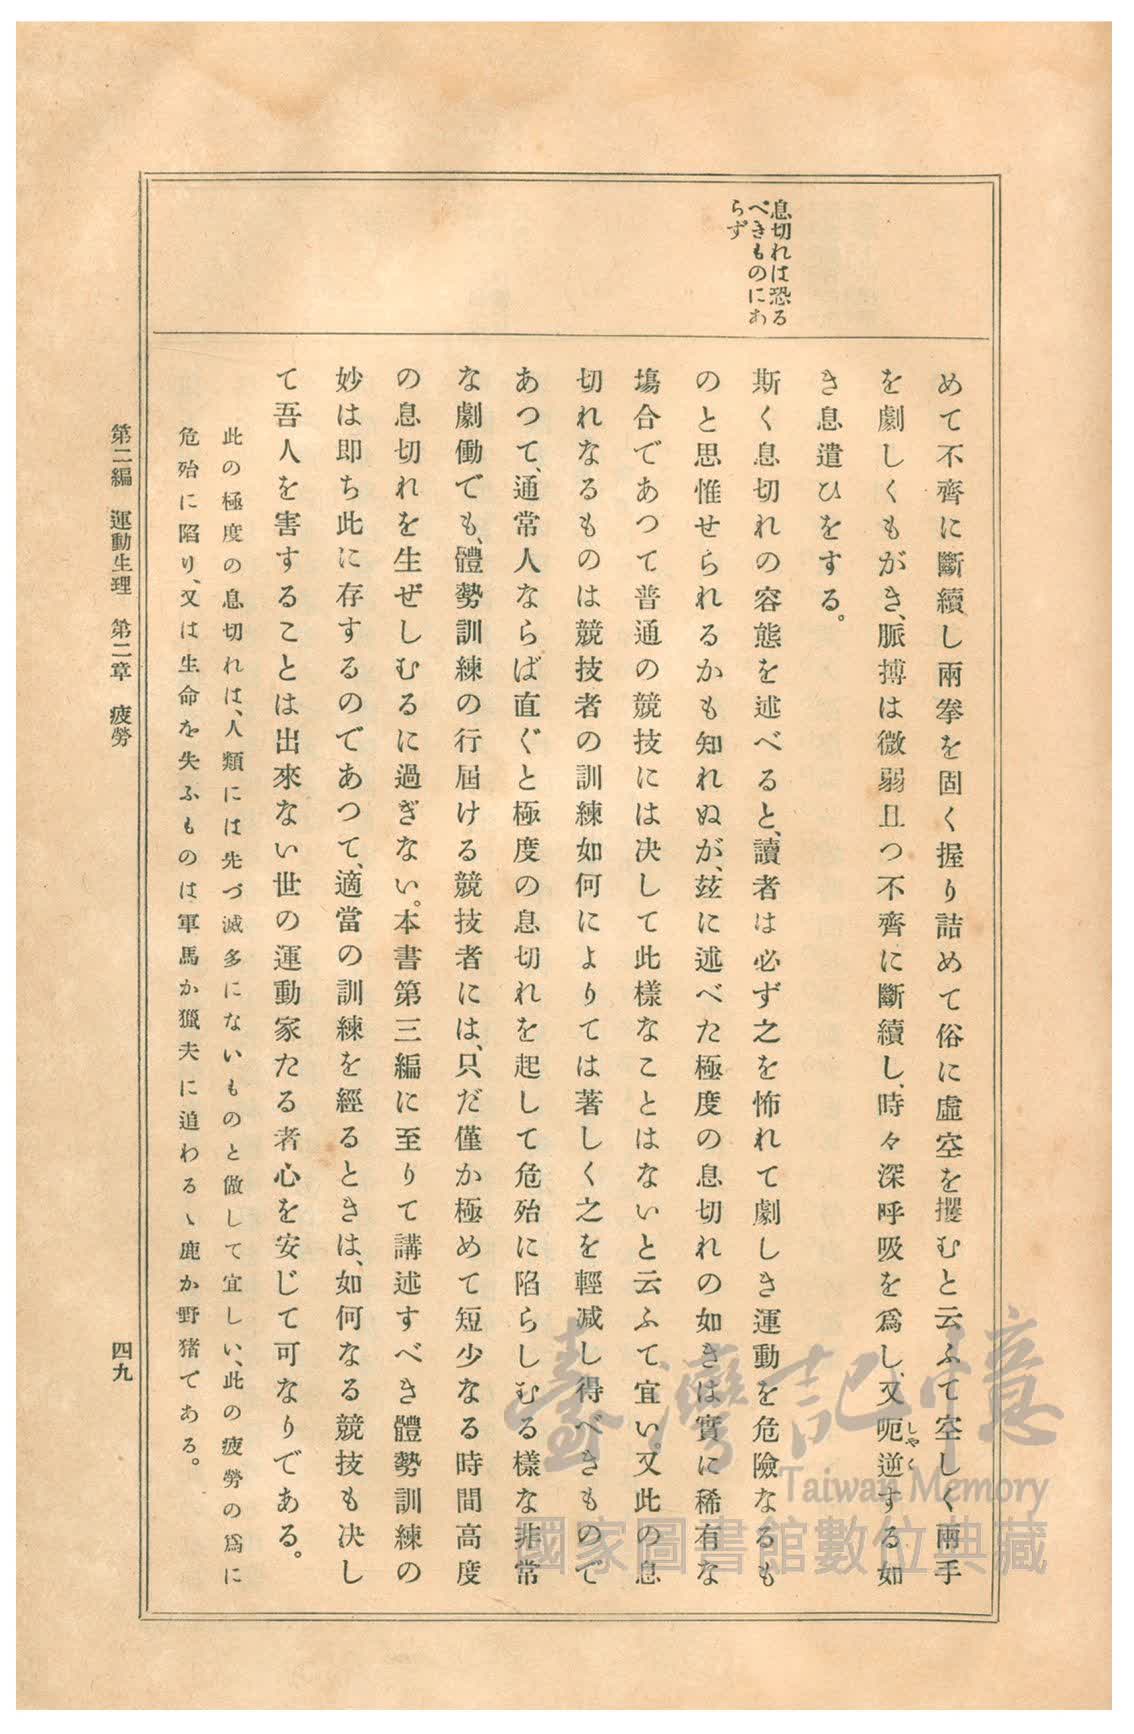 息切れは恐る
べきものにあ
らず
めて不齊に斷續し兩拳を固く握り詰めて俗に虛空を攫むと云ふて空しく兩手
を劇しくもがき、脈搏は微弱且つ不齊に斷續し、時々深呼吸を爲し、又呃逆する如
しやく
き息遣ひをする。
斯く息切れの容態を述べると、讀者は必ず之を怖れて劇しき運動を危險なるも
のと思惟せられるかも知れぬが、玆に述べた極度の息切れの如きは實に稀有な
塲合であつて普通の競技には决して此樣なことはないと云ふて宜い。又此の息
切れなるものは競技者の訓練如何によりては著しく之を輕减し得べきもので
あつて、通常人ならば直ぐと極度の息切れを起して危殆に陷らしむる樣な非常
な劇働でも、體勢訓練の行屆ける競技者には、只だ僅か極めて短少なる時間高度
の息切れを生ぜしむるに過ぎない。本書第三編に至りて講述すべき體勢訓練の
妙は即ち此に存するのであつて、適當の訓練を經るときは、如何なる競技も决し
て吾人を害することは出來ない世の運動家たる者心を安じて可なりである。
此の極度の息切れは、人類には先づ滅多にないものと倣して宜しい、此の疲勞の爲に
危殆に陷り、又は生命を失ふものは軍馬か獵夫に追わるゝ鹿か野猪である。
第二編 運動生理 第二章 疲勞
四九
臺灣記憶
Taiwan Memory
國家圖書館數位典藏